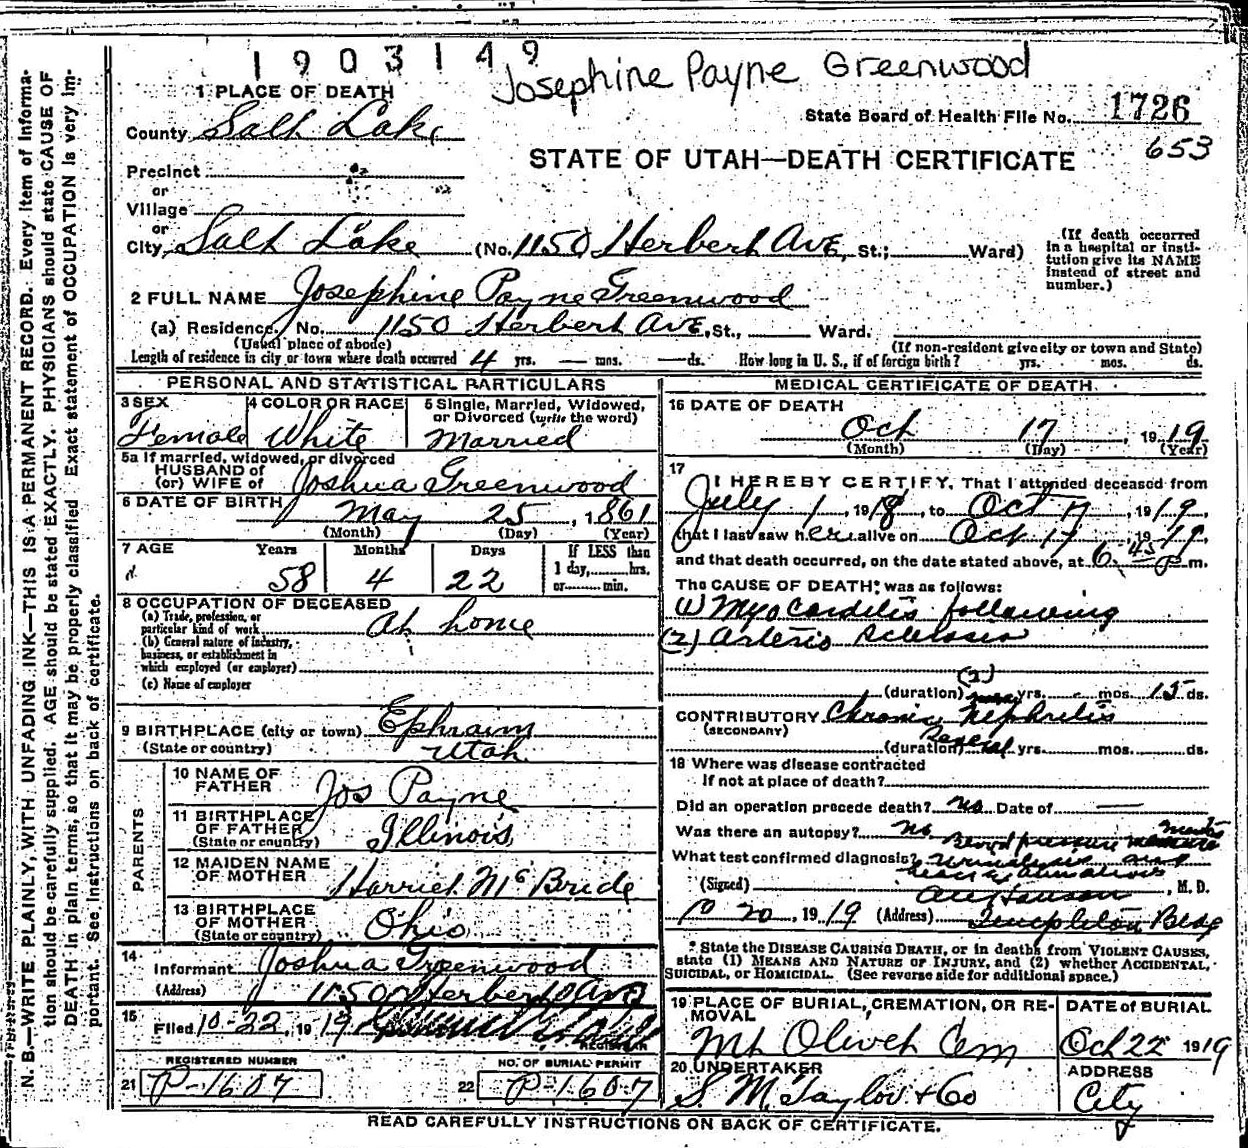 1903149
Josephine Payne Greenwood
1 PLACE OF DEATH
State Board of Health File No. 1726
County Salt Lake
653
STATE OF UTAH—DEATH CERTIFICATE
Precinct
or
Village
or
City Salt Lake (No. 1150 Herbert Ave, St.; Ward)
(If death occurred in a hospital or institution give its NAME instead of street and number.)
2 FULL NAME Josephine Payne Greenwood
(a) Residence. No. 1150 Herbert Ave, St., Ward.
(Usual place of abode) (If non-resident give city or town and State)
Length of residence in city or town where death occurred 4 yrs. — mos. — ds. How long in U. S., if of foreign birth? yrs. mos. ds.
PERSONAL AND STATISTICAL PARTICULARS
3 SEX Female
4 COLOR OR RACE White
5 Single, Married, Widowed, or Divorced (write the word) Married
5a If married, widowed, or divorced
HUSBAND of
(or) WIFE of Joshua Greenwood
6 DATE OF BIRTH May 25, 1861
(Month) (Day) (Year)
7 AGE Years Months Days If LESS than
58 4 22 1 day, hrs.
or min.
8 OCCUPATION OF DECEASED
(a) Trade, profession, or
particular kind of work At home
(b) General nature of industry,
business, or establishment in
which employed (or employer)
(c) Name of employer
9 BIRTHPLACE (city or town) Ephraim
(State or country) Utah
PARENTS
10 NAME OF FATHER Jos Payne
11 BIRTHPLACE OF FATHER Illinois
(State or country)
12 MAIDEN NAME OF MOTHER Harriet McBride
13 BIRTHPLACE OF MOTHER Ohio
(State or country)
14
Informant Joshua Greenwood
(Address) 1150 Herbert Ave
15
Filed 10-22, 1919
REGISTRAR
REGISTERED NUMBER
21 P-1607
NO. OF BURIAL PERMIT
22 P-1607
MEDICAL CERTIFICATE OF DEATH
16 DATE OF DEATH
Oct 17, 1919
(Month) (Day) (Year)
17
I HEREBY CERTIFY, That I attended deceased from
July 1, 1918, to Oct 17, 1919,
that I last saw her alive on Oct 17, 1919,
and that death occurred, on the date stated above, at 6:45 P m.
The CAUSE OF DEATH* was as follows:
(1) Myocarditis following
(2) Arterio Sclerosis
(2)
(duration) yrs. - mos. 15 ds.
CONTRIBUTORY Chronic Nephritis
(SECONDARY)
(duration) Several yrs. mos. ds.
18 Where was disease contracted
If not at place of death?
Did an operation precede death? No Date of —
Was there an autopsy? No
Blood pressure
What test confirmed diagnosis? Urinalysis and
(Signed) Hanson, M. D.
10 20, 1919 (Address) Templeton Bldg
* State the DISEASE CAUSING DEATH, or in deaths from VIOLENT CAUSES,
state (1) MEANS AND NATURE OF INJURY, and (2) whether ACCIDENTAL,
SUICIDAL, or HOMICIDAL. (See reverse side for additional space.)
19 PLACE OF BURIAL, CREMATION, OR REMOVAL
Mt Olivet Cem
DATE of BURIAL
Oct 22 1919
20 UNDERTAKER
S. M. Taylor & Co
ADDRESS
City
READ CAREFULLY INSTRUCTIONS ON BACK OF CERTIFICATE.
N. B.—WRITE PLAINLY, WITH UNFADING INK—THIS IS A PERMANENT RECORD. Every item of informa-
tion should be carefully supplied. AGE should be stated EXACTLY. PHYSICIANS should state CAUSE OF
DEATH in plain terms, so that it may be properly classified. Exact statement of OCCUPATION is very im-
portant. See instructions on back of certificate.